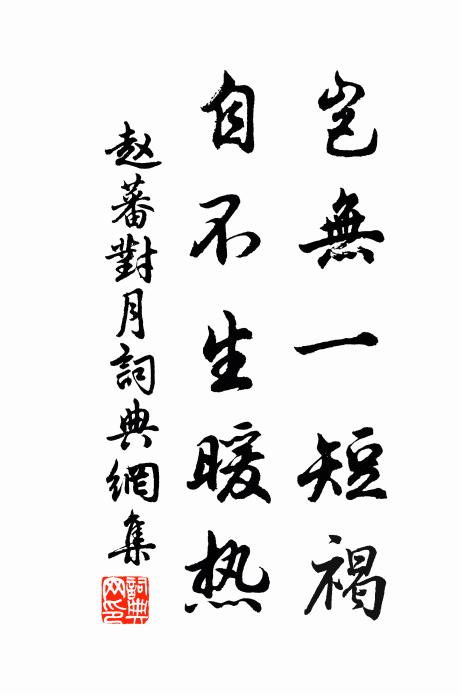 岂無一短褐
自不生暖热
赵蕃對月詞典網集
詞典网印